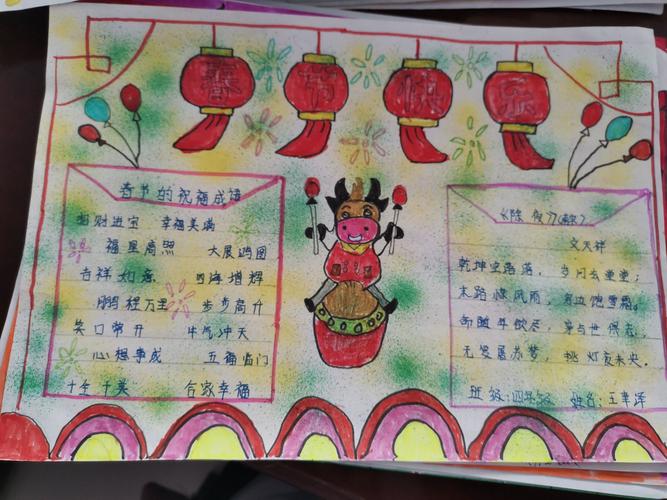 春节快乐
春节的祝福成语
招财进宝 幸福美满
福星高照 大展鸿图
吉祥如意 四海增辉
鹏程万里 步步高升
笑口常开 牛气冲天
心想事成 五福临门
十全十美 合家幸福
《除夜》（南宋）
文天祥
乾坤空落落，岁月去堂堂；
末路惊风雨，穷边饱雪霜。
命随年欲尽，身与世俱忘；
无复屠苏梦，挑灯夜未央。
班级：四年级 姓名：王